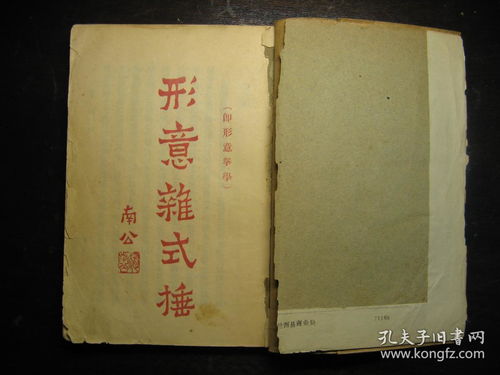 （即形意拳學）
形意雜式捶
南公
71166
孔夫子旧书网
www.kongfz.com